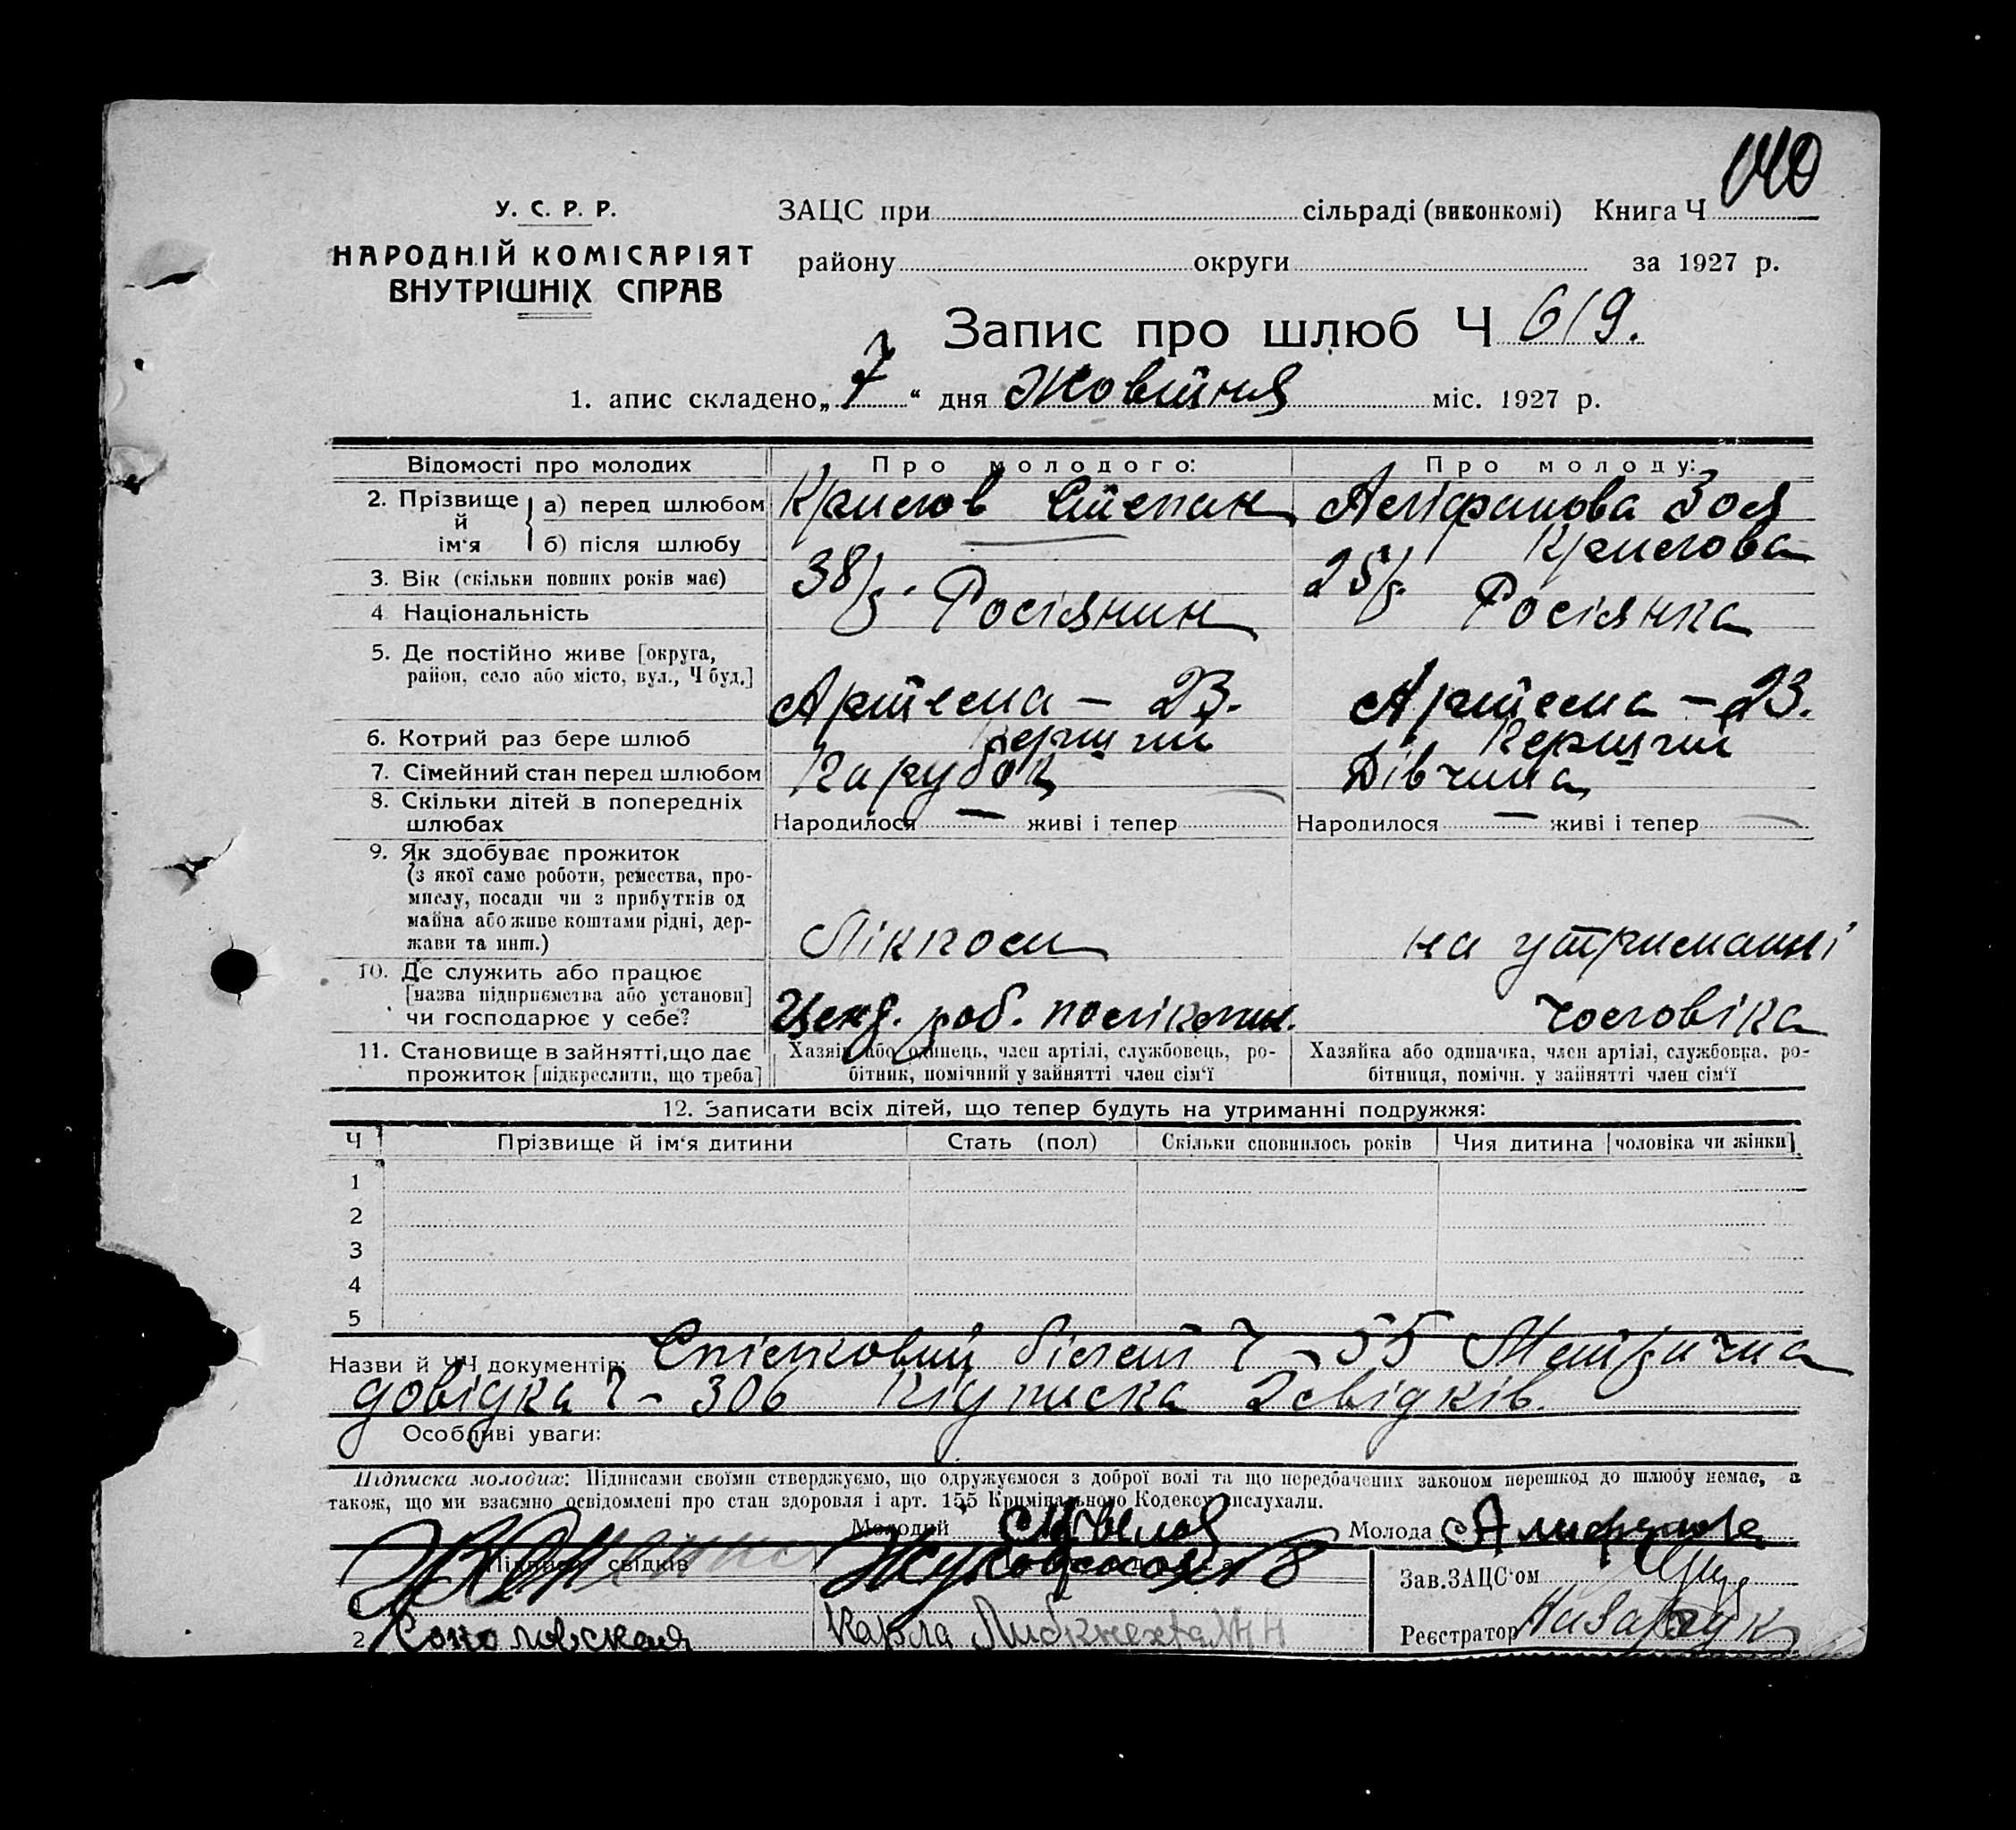 140
У. С. Р. Р.
НАРОДНІЙ КОМІСАРІЯТ
ВНУТРІШНІХ СПРАВ
ЗАЦС при сільраді (виконкомі) Книга Ч
району округи за 1927 р.
Запис про шлюб Ч 619.
1. апис складено „7“ дня Жовтня міс. 1927 р.
Відомості про молодих Про молодого: Про молоду:
2. Прізвище й ім‘я а) перед шлюбом Крилов Степан Аліфанова Зоя
б) після шлюбу — Крилова
3. Вік (скільки повних років має) 38/р. 25/р.
4 Національність Росіянин Росіянка
5. Де постійно живе [округа,
район, село або місто, вул., Ч буд.] Артема – 23. Артема – 23.
6. Котрий раз бере шлюб Перший Перший
7. Сімейний стан перед шлюбом Парубок Дівчина
8. Скільки дітей в попередніх
шлюбах Народилося — живі і тепер — Народилося — живі і тепер —
9. Як здобуває прожиток
(з якої саме роботи, ремества, про-
мислу, посади чи з прибутків од
майна або живе коштами рідні, дер-
жави та инш.) Лікпом на утриманні
10. Де служить або працює
[назва підприємства або установи]
чи господарює у себе? роб. поліклин. чоловіка
11. Становище в зайнятті, що дає
прожиток [підкреслити, що треба]
Хазяїн або одинець, член артілі, службовець, ро-
бітник, помічний у зайнятті член сім‘ї
Хазяйка або одиначка, член артілі, службовка, ро-
бітниця, помічн. у зайнятті член сім‘ї
12. Записати всіх дітей, що тепер будуть на утриманні подружжя:
Ч Прізвище й ім‘я дитини Стать (пол) Скільки сповнилось років Чия дитина [чоловіка чи жінки]
1
2
3
4
5
Назви й ЧЧ документів: Спілковий білет Ч – 55 Метрична
довідка Ч – 306 Підписка 2 свідків.
Особливі уваги:
Підписка молодих: Підписами своїми стверджуємо, що одружуємося з доброї волі та що передбачених законом перешкод до шлюбу немає, а
також, що ми взаємно освідомлені про стан здоровля і арт. 155 Кримінального Кодексу вислухали.
Молодий Молода Алифанова
Підписи свідків
Зав. ЗАЦС‘ом
1
2 Карла Либкнехта
Реєстратор Назарчук